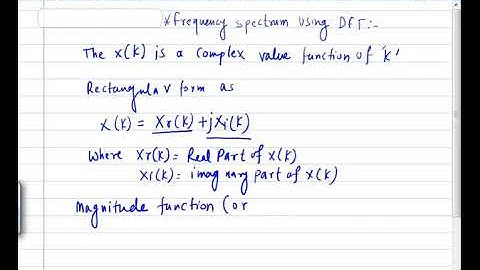 *frequency spectrum using DFT:-
The X(K) is a complex value function of 'K'
Rectangular form as
X(K) = Xr(K) + jXi(K)
Where Xr(K) = Real Part of X(K)
Xi(K) = imaginary part of X(K)
Magnitude function (or